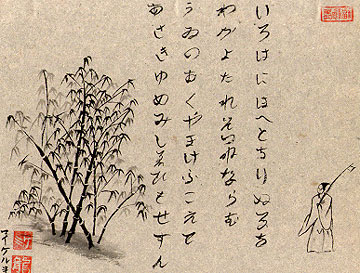 いろはにほへとちりぬるを
わかよたれそつねならむ
うゐのおくやまけふこえて
あさきゆめみしゑひもせすん
マイケル